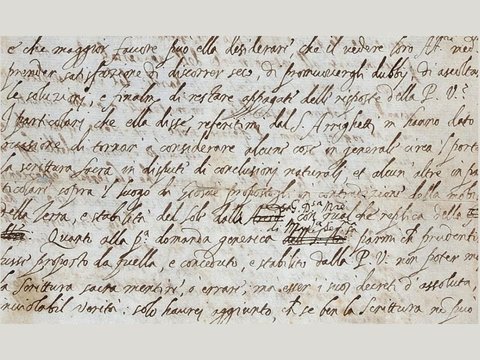 e che maggior favore può ella desiderare, che il vedere loro Alt.e med.
prender satisfazione di discorrer seco, di promuovergli dubbij, di ascoltar
le soluzioni, e finalm. di restare appagate delle risposte della P. V.a
I particolari che ella disse, referitimi dal S. Arrighetti m'hanno dato
occasione di tornar a considerare alcune cose in generale circa 'l porta
la scrittura sacra in dispute di conclusioni naturali, et alcun' altre in pa
ticolare sopra 'l luogo di Giosue propostoli in contradizione della mobi
della Terra, e stabilità del sole dalla con qualche replica della
Quanto alla p.a domanda generica di parmi ch prudenti
fusse proposto da quella, e conceduto, e stabilito dalla P. V. non poter m
la Scrittura sacra mentire, o errare, ma esser i suoi decreti d'assoluta,
inviolabil verità: solo haurei aggiunto, ch se ben la Scrittura no può